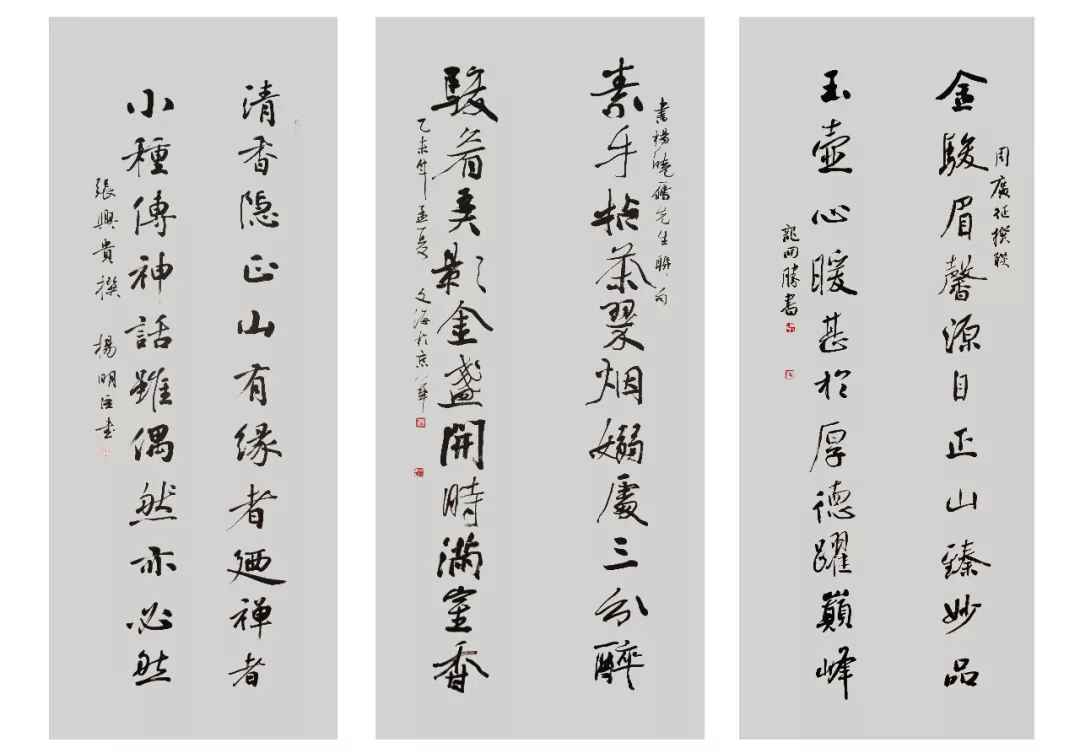 周廣征撰聯
金駿眉馨源自正山臻妙品
玉壺心暖甚於厚德躍巔峰
龍開勝書
書楊曉先生聯句
素手拈茶翠烟嫋處三分醉
駿眉弄影金盞開時滿室香
乙未年孟夏 文海於京華
清香隱正山有緣者廼禪者
小種傳神話雖偶然亦必然
張興貴撰 楊明臣書